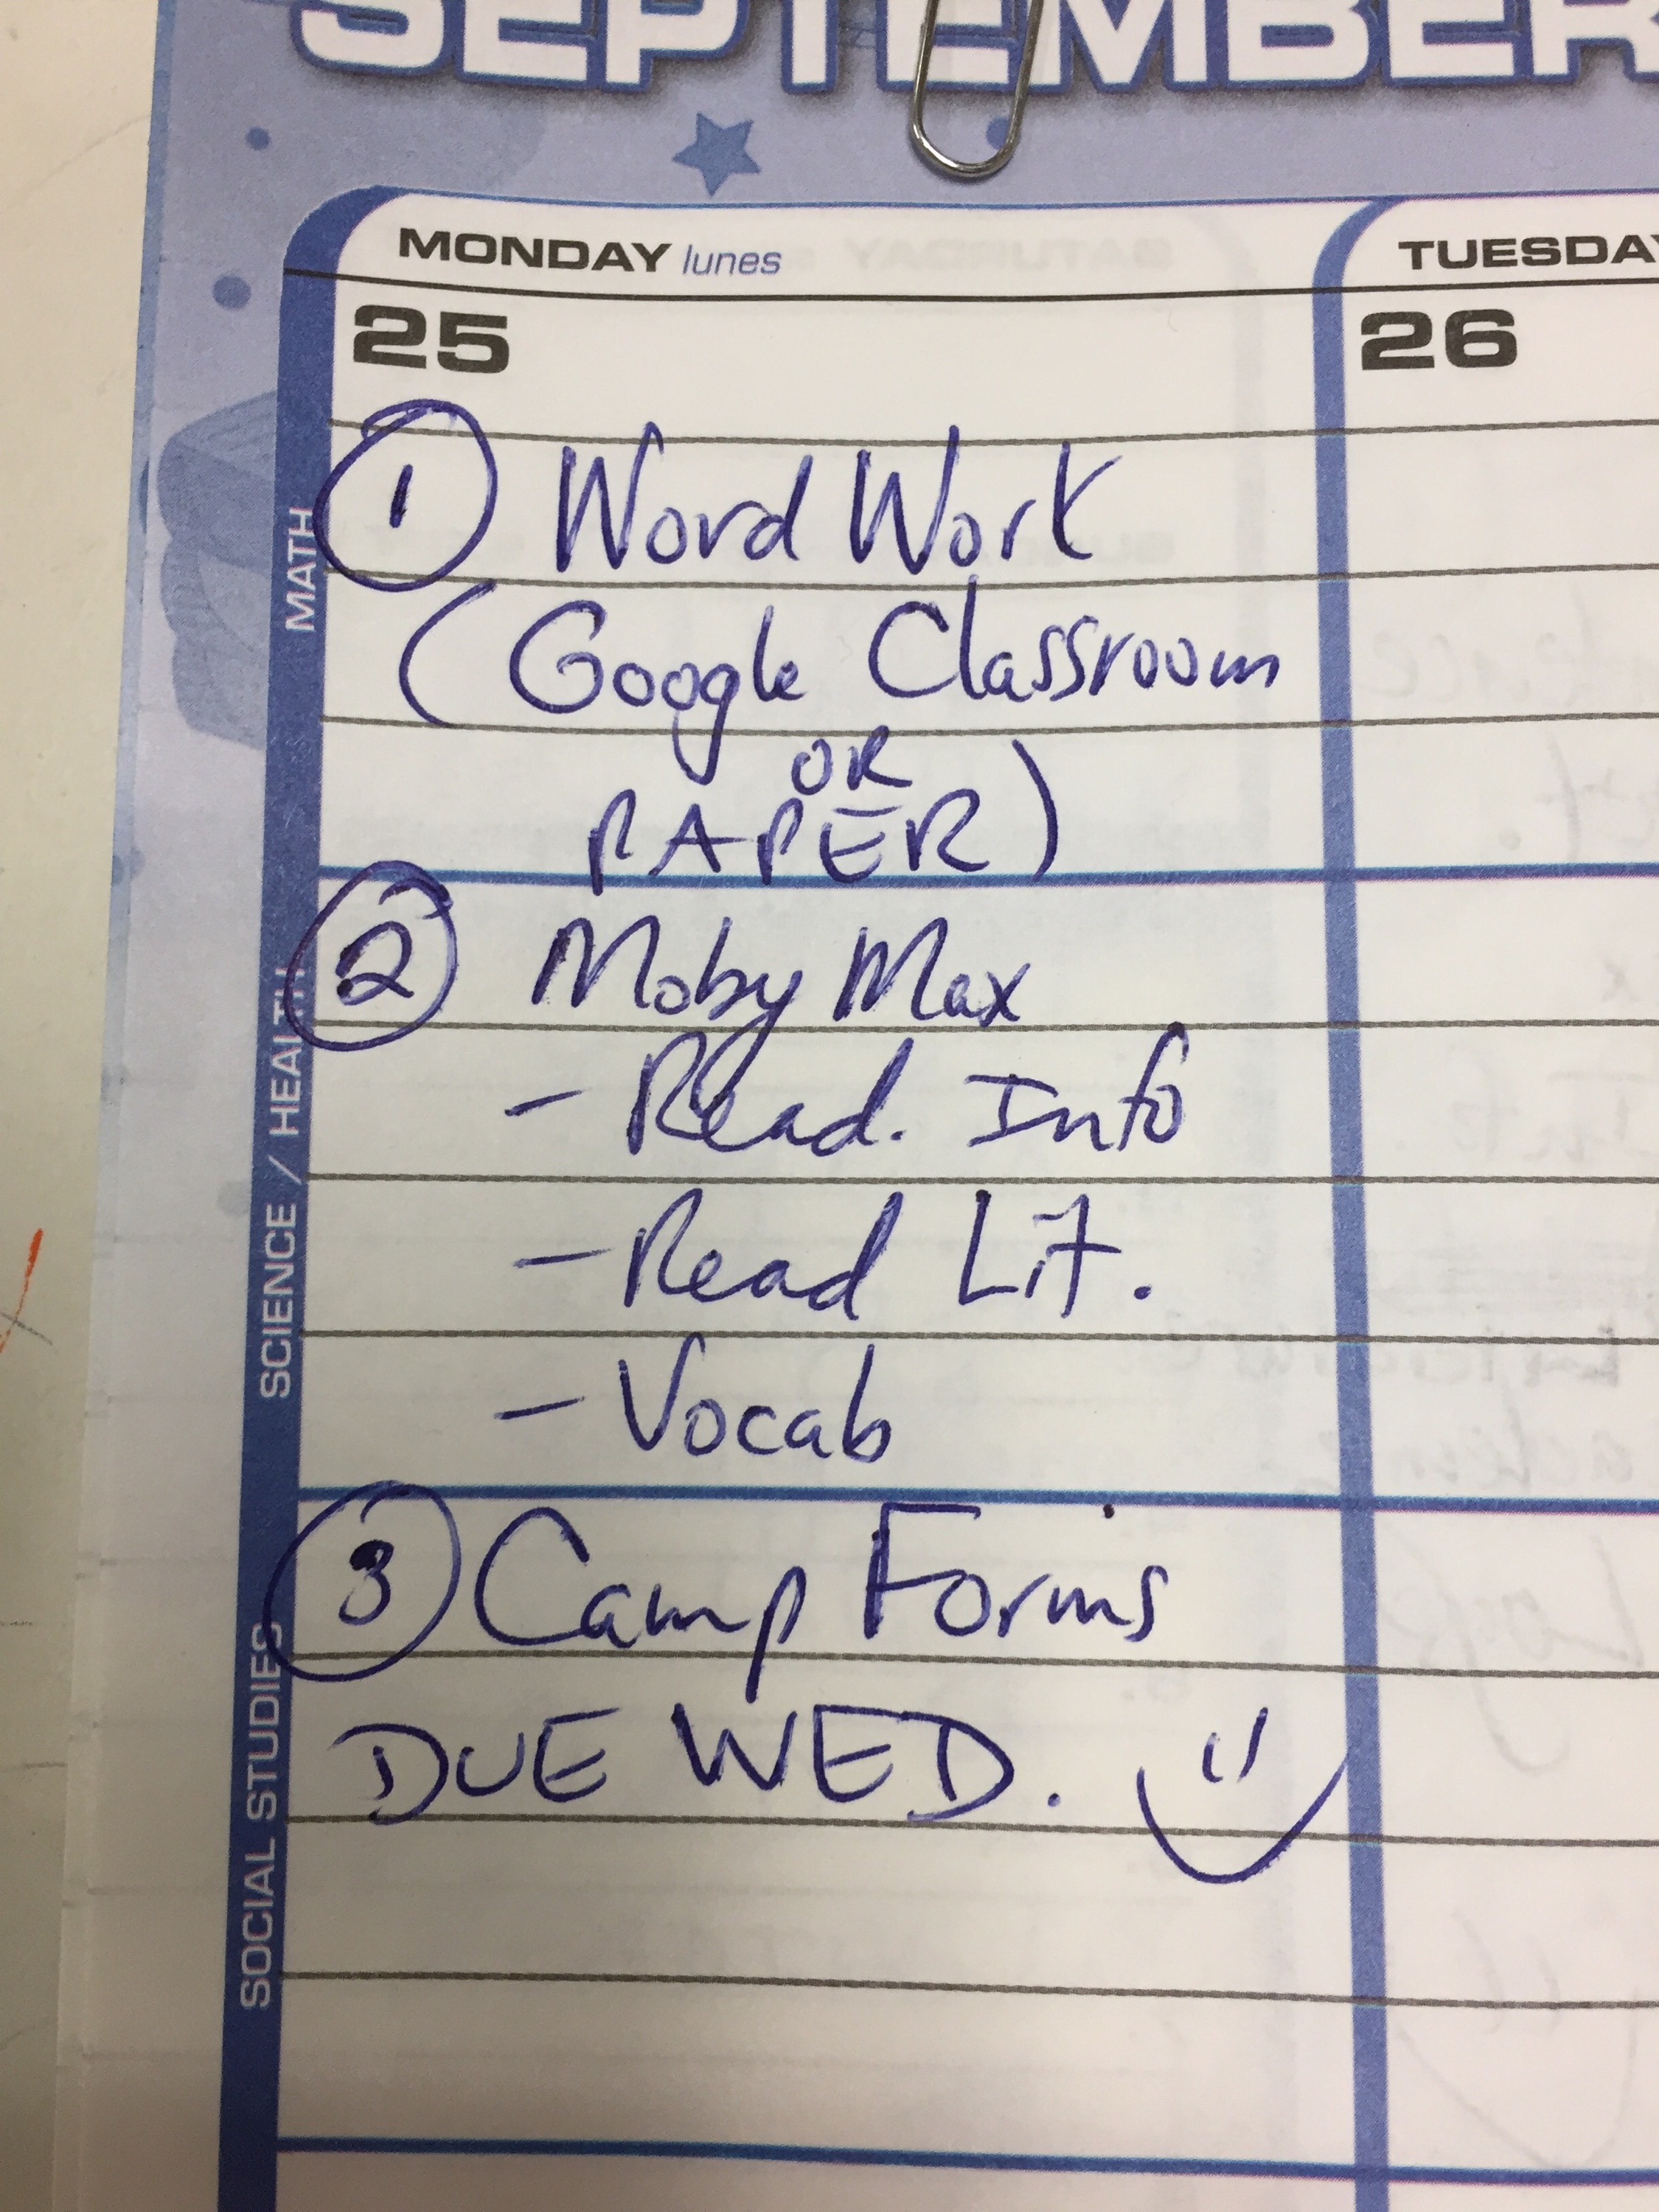 SEPTEMBER
MONDAY lunes
TUESDAY
25
26
MATH
1 Word Work
(Google Classroom
OR
PAPER)
SCIENCE / HEALTH
2 Moby Max
- Read. Info
- Read Lit.
- Vocab
SOCIAL STUDIES
3 Camp Forms
DUE WED.